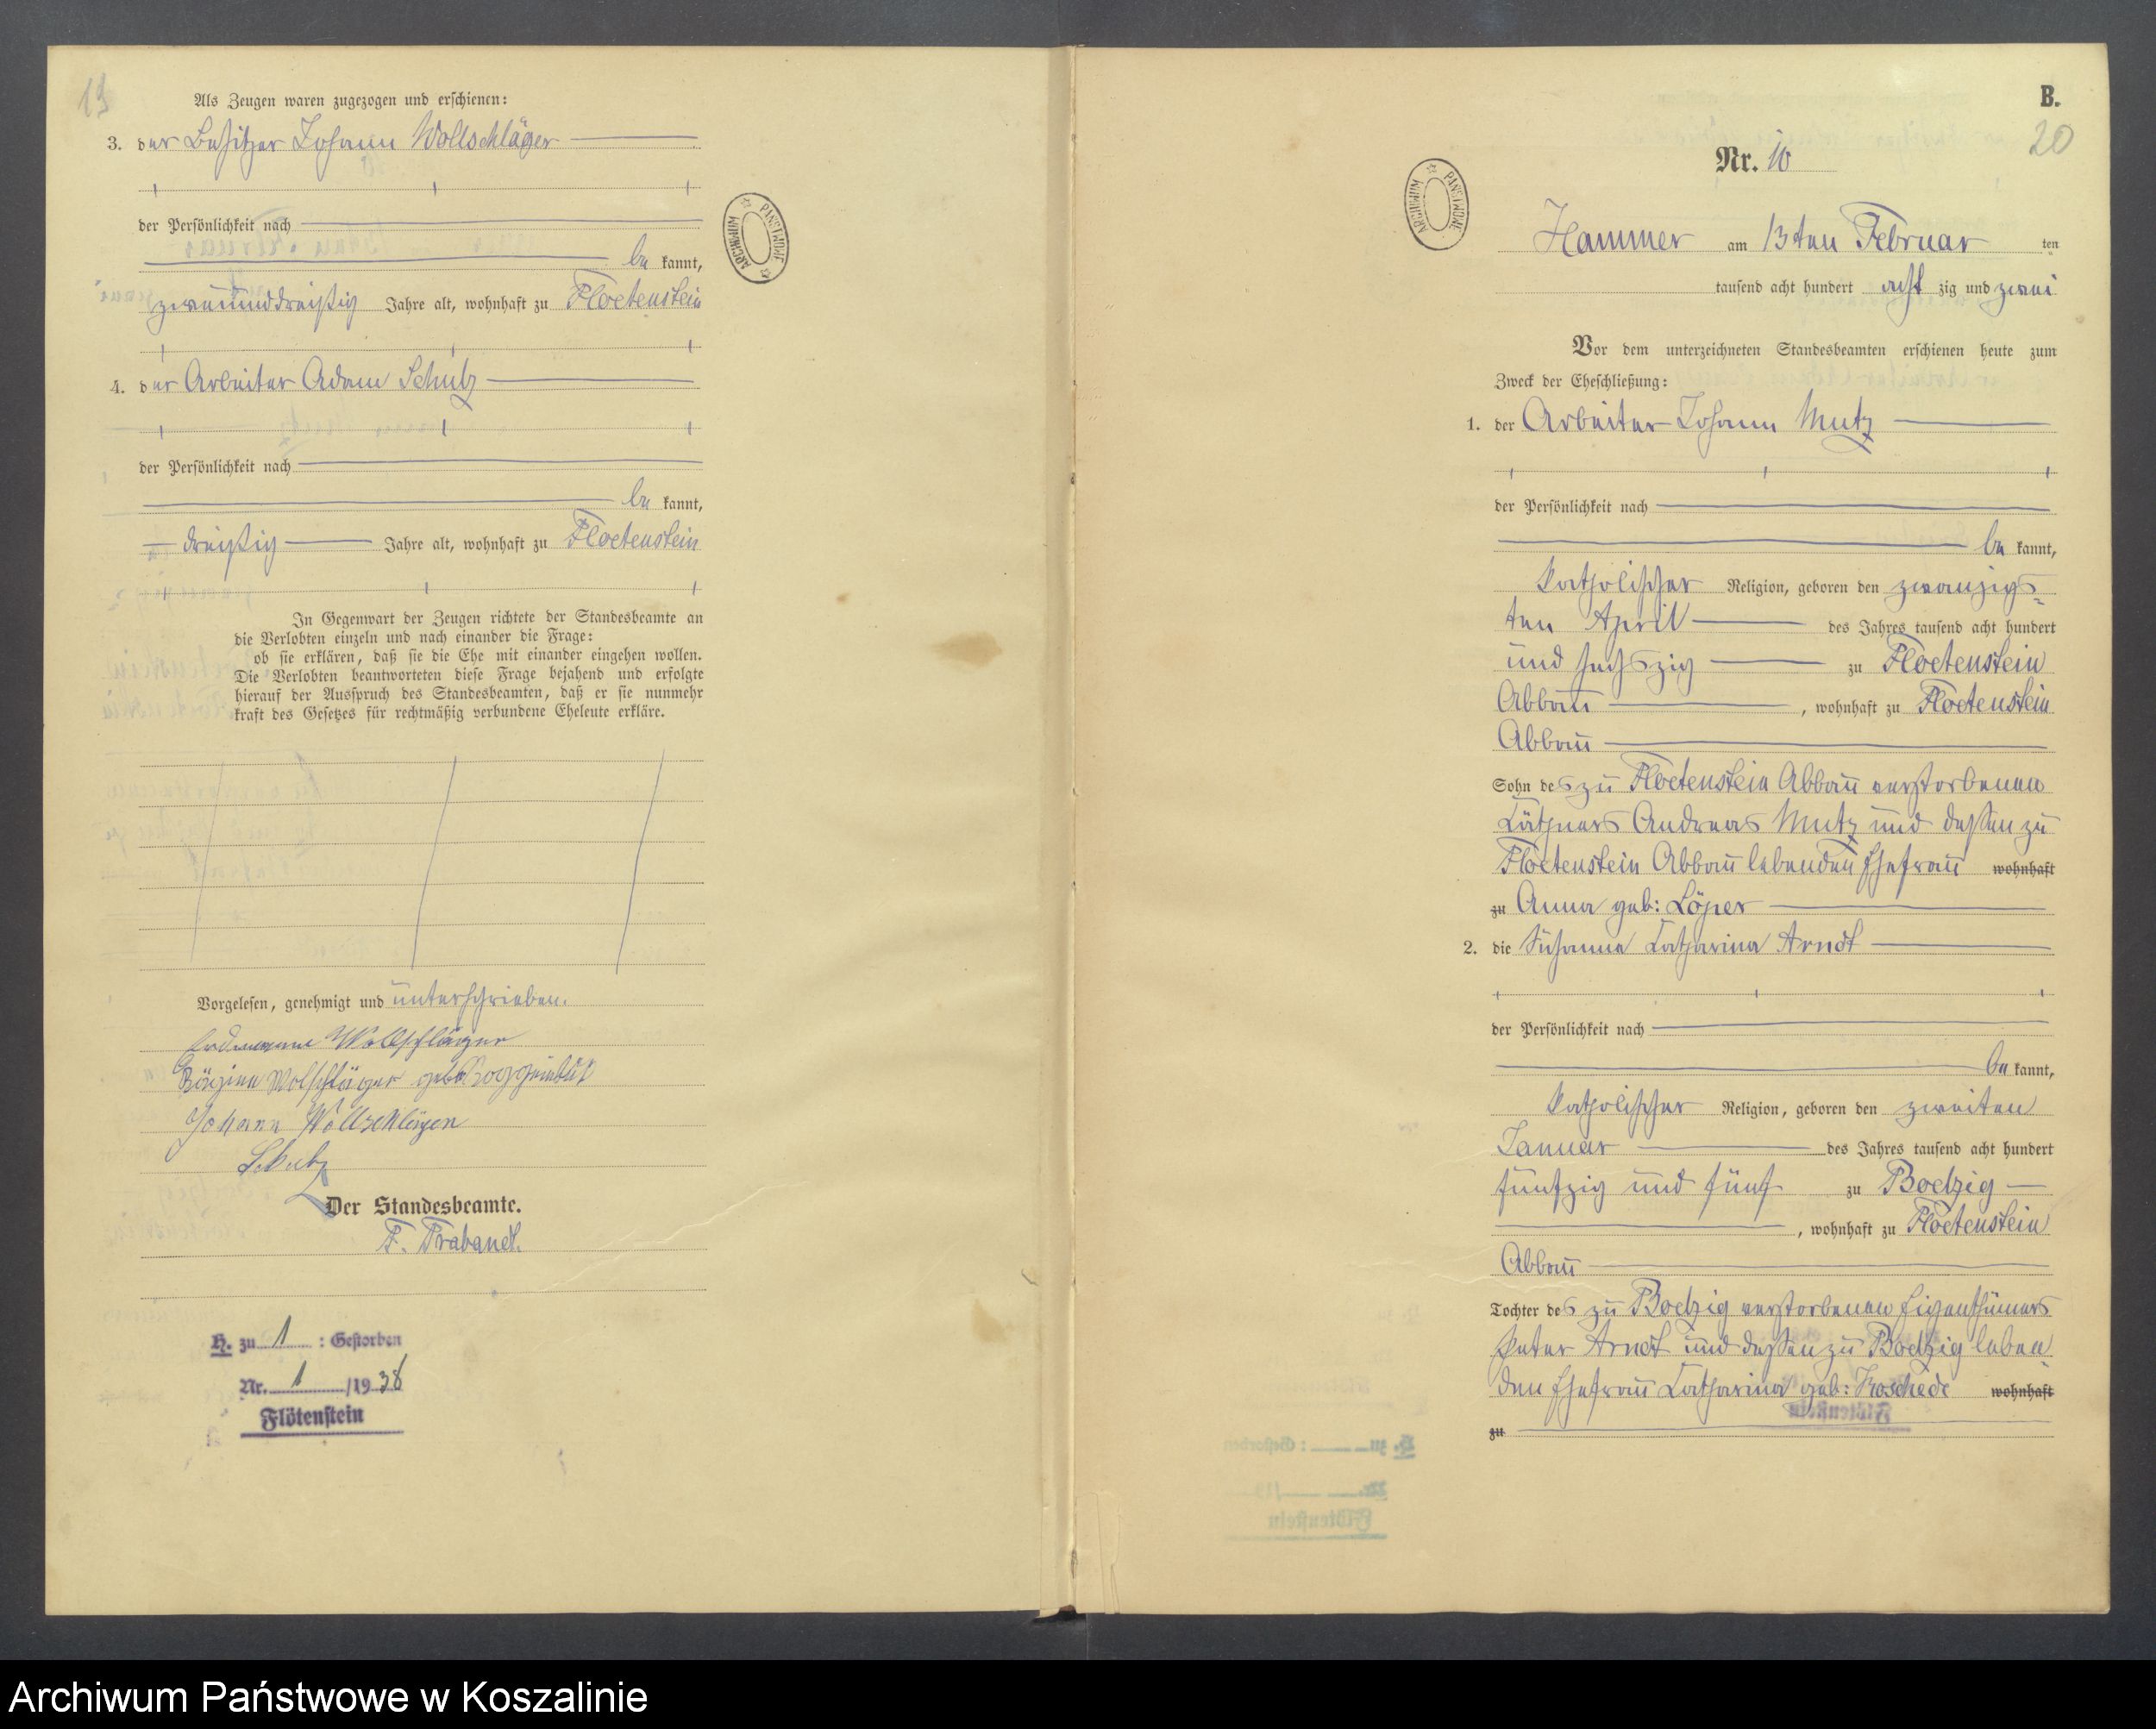 13
Als Zeugen waren zugezogen und erschienen:
3. der Besitzer Johann Wollschläger
der Persönlichkeit nach
be kannt,
zweiunddreißig Jahre alt, wohnhaft zu Floetenstein
4. der Arbeiter Adam Schulz
der Persönlichkeit nach
be kannt,
dreißig Jahre alt, wohnhaft zu Floetenstein
In Gegenwart der Zeugen richtete der Standesbeamte an
die Verlobten einzeln und nach einander die Frage:
ob sie erklären, daß sie die Ehe mit einander eingehen wollen.
Die Verlobten beantworteten diese Frage bejahend und erfolgte
hierauf der Ausspruch des Standesbeamten, daß er sie nunmehr
kraft des Gesetzes für rechtmäßig verbundene Eheleute erkläre.
Vorgelesen, genehmigt und unterschrieben.
Erdmann Wollschläger
Wolschläger geb
Johann Wollschläger
Schulz
Der Standesbeamte.
F. Trabandt.
H. zu 1 : Gestorben
Nr. 1 /1938
Flötenstein
ARCHIWUM PAŃSTWOWE
B.
20
Nr. 10
ARCHIWUM PAŃSTWOWE
Hammer am 13ten Februar ten
tausend acht hundert acht zig und zwei
Vor dem unterzeichneten Standesbeamten erschienen heute zum
Zweck der Eheschließung:
1. der Arbeiter Johann Mutz
der Persönlichkeit nach
be kannt,
katholischer Religion, geboren den zwanzigs-
ten April des Jahres tausend acht hundert
und sechszig zu Floetenstein
Abbau , wohnhaft zu Floetenstein
Abbau
Sohn des zu Floetenstein Abbau verstorbenen
Käthners Andreas Mutz und deßen zu
Floetenstein Abbau lebenden Ehefrau wohnhaft
zu Anna geb: Löper
2. die Susanna Catharina Arndt
der Persönlichkeit nach
be kannt,
katholischer Religion, geboren den zweiten
Januar des Jahres tausend acht hundert
fünfzig und fünf zu Boelzig
, wohnhaft zu Floetenstein
Abbau
Tochter des zu Boelzig verstorbenen Eigenthümers
Peter Arndt und deßen zu Boelzig leben
den Ehefrau Catharina geb: wohnhaft
zu
Archiwum Państwowe w Koszalinie